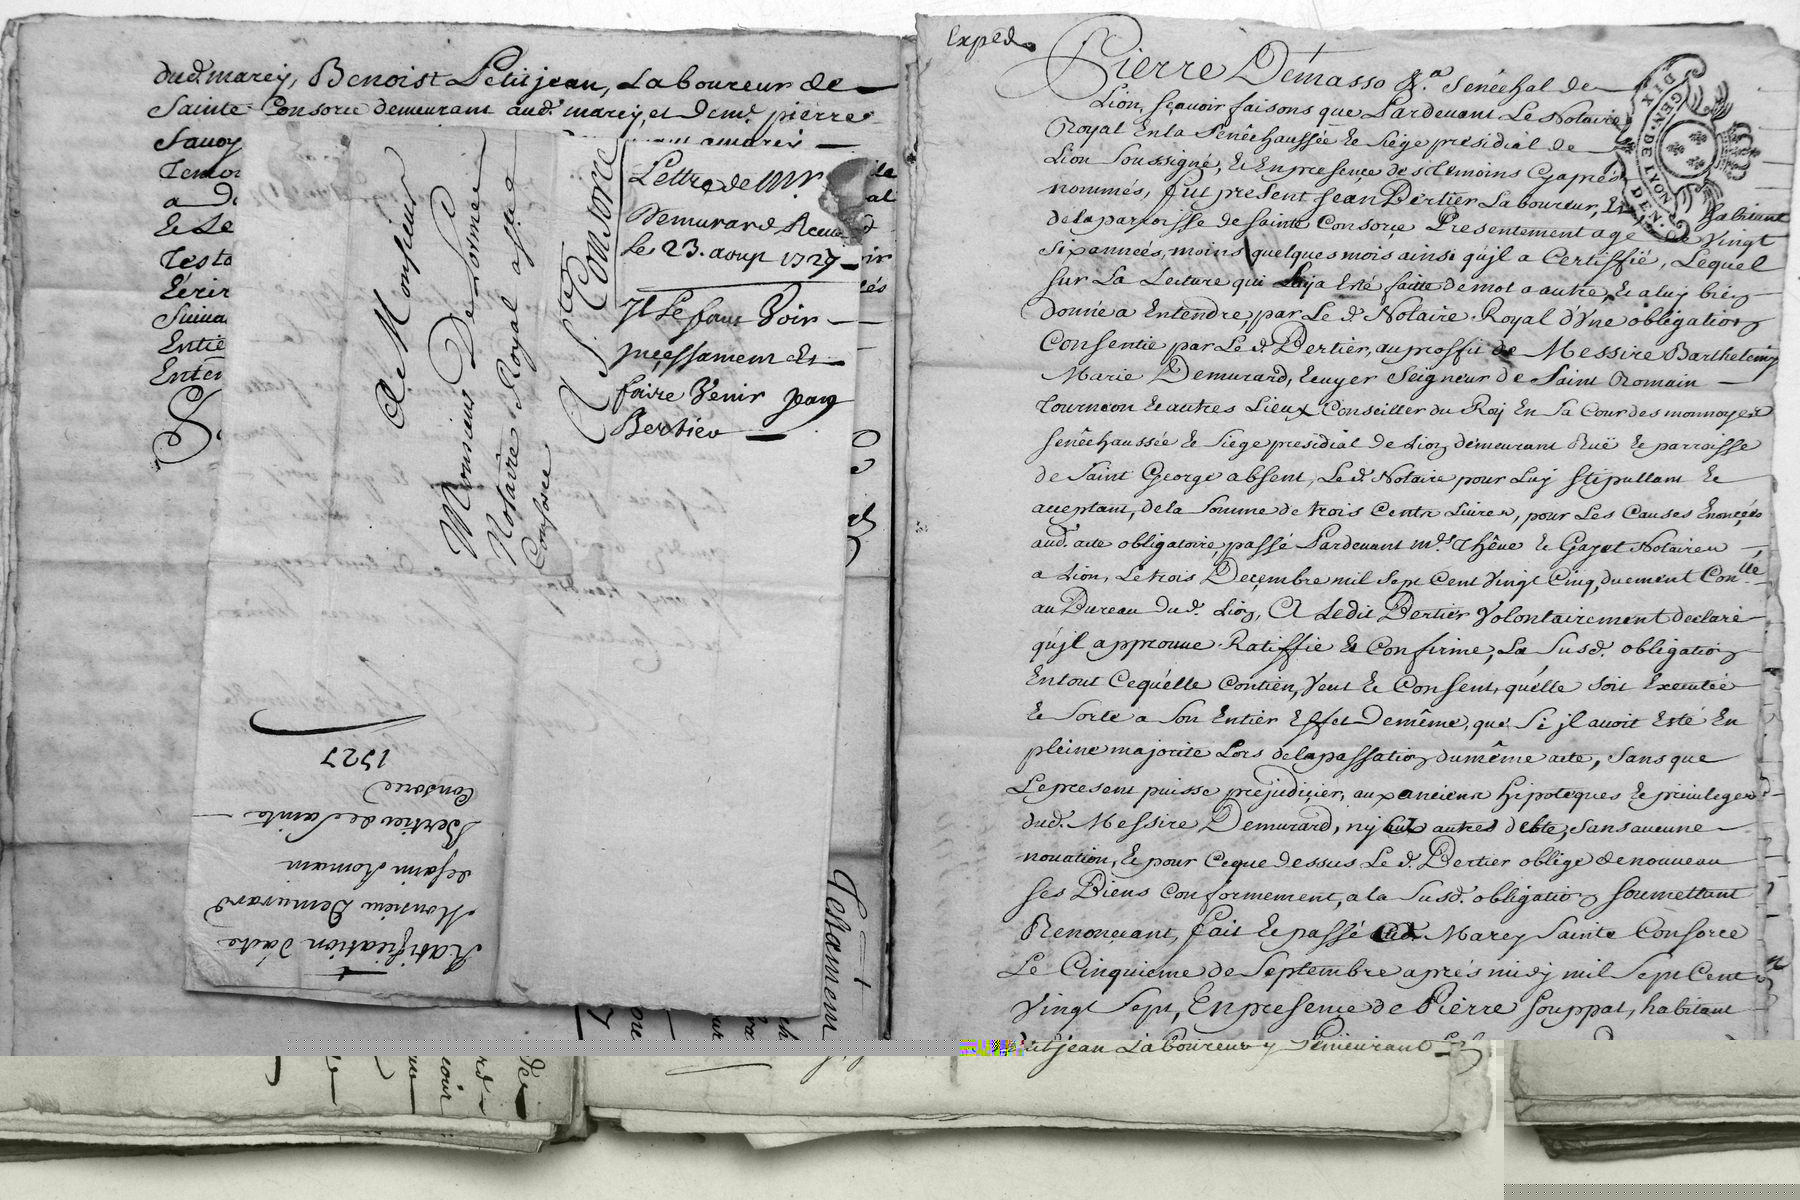 dud. marcy, Benoist Petitjean, Laboureur de
Sainte Consorce demeurant aud. marcy, et dem. pierre
Savoy
Temoi
a
Testa
Ecrir
Suiva
Entie
Enten
A Monsieur
Monsieur Delorme
Notaire Royal a Ste
Consorce
A Ste Consorce
Lettre de Mr
Demurard Receue
le 23. aoup 1727
Il le faut Voir
incessament Et
faire Venir Jean
Bertier
Ratification d'acte
Monsieur Demurard
de Saint Romain
Bertier de Sainte
Consorce
1727
Testament
Exped.
Pierre Demasso &.a Senechal de
Lion, sçavoir faisons que Pardevant Le Notaire
Royal En la Senêchaussée & Siége présidial de
Lion Soussigné, & En presence des temoins Cyaprés
nommés, fut present Jean Bertier Laboureur, habitant
de la parroisse de Sainte Consorce Presentement agé de Vingt
Six années, moins quelques mois ainsi qu'jl a Certiffié, Lequel
sur La Lecture qui Luy a Esté faitte de mot a autre, & a luy bien
donné a Entendre, par Le d. Notaire Royal d'Vne obligation
Consentie par Le d. Bertier, au proffit de Messire Barthelemy
Marie Demurard, Ecuyer Seigneur de Saint Romain
Tournon & autres Lieux Conseiller du Roy En la Cour des monnoyes
Senêchaussée & Siege presidial de Lion demeurant Ruë & parroisse
de Saint George absent, Le d. Notaire pour Luy Stipullant &
acceptant, de la Somme de trois Cents Livres, pour Les Causes Enoncées
aud. acte obligatoire, passé Pardevant m.es Thêve & Gayet Notaires
a Lion, Le trois Decembre mil Sept Cent Vingt Cinq, duement Con.llé
au Bureau dud. Lion, A Ledit Bertier Volontairement declaré
qu'jl approuve Ratiffie & Confirme, La Susd. obligation
En tout Ce qu'elle Contien, Veut & Consent, qu'elle soit Executée
& Sorte a Son Entier Effet De même, que Si jl avoit Esté En
pleine majorité Lors de la passation du même acte, Sans que
Le present puisse préjudicier, aux anciens hipoteques & privileges
dud. Messire Demurard, ny autres debte, sans aucune
novation, & pour Ce que dessus Le d. Bertier oblige de nouveau
ses Biens Conformement, a la Susd. obligation soumettant
Renonçant, fait & passé Marcy Sainte Consorce
Le Cinquieme de Septembre aprés midy mil Sept Cent
Vingt Sept, En presence de Pierre Souppat, habitant
titjean Laboureur y Demeurant
GEN. DE LYON
DIX DEN.